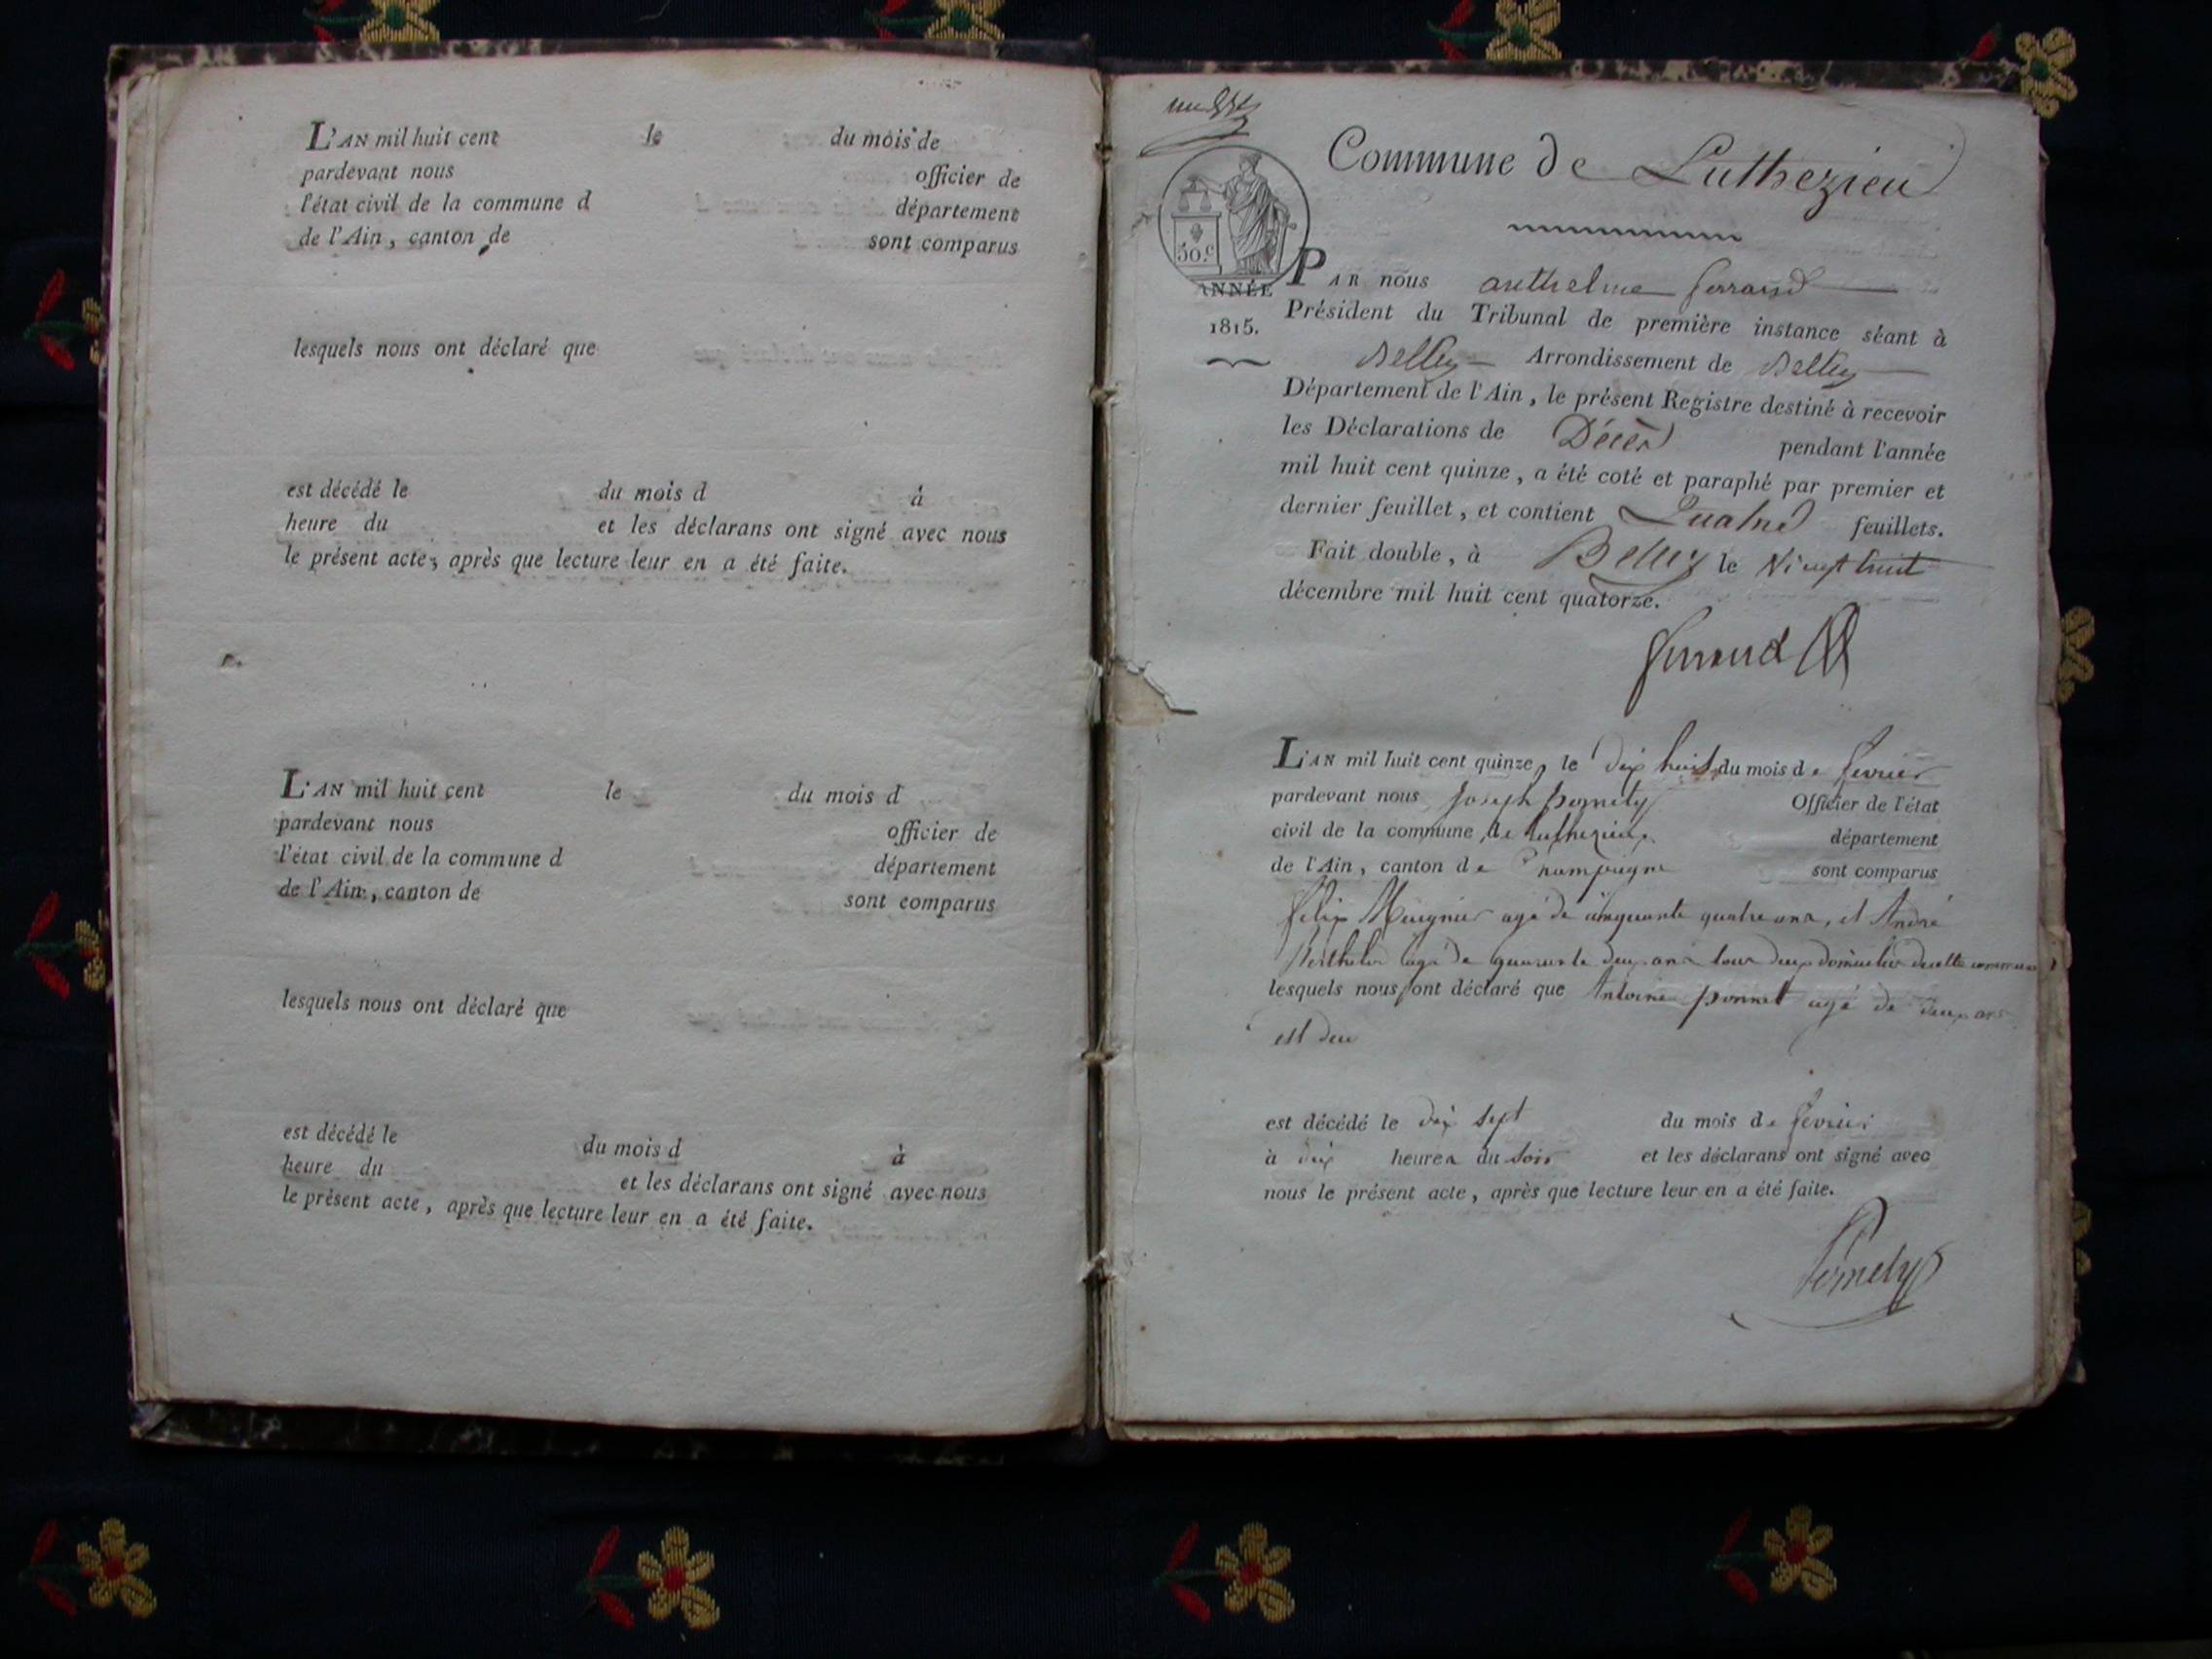 L'AN mil huit cent le du mois de
pardevant nous officier de
l'état civil de la commune d département
de l'Ain, canton de sont comparus
lesquels nous ont déclaré que
est décédé le du mois d à
heure du et les déclarans ont signé avec nous
le présent acte, après que lecture leur en a été faite.
L'AN mil huit cent le du mois d
pardevant nous officier de
l'état civil de la commune d département
de l'Ain, canton de sont comparus
lesquels nous ont déclaré que
est décédé le du mois d à
heure du et les déclarans ont signé avec nous
le présent acte, après que lecture leur en a été faite.
Commune de Luthezieu
50.c
ANNÉE
1815.
PAR nous anthelme ferrand
Président du Tribunal de première instance séant à
Belley Arrondissement de Belley
Département de l'Ain, le présent Registre destiné à recevoir
les Déclarations de Décès pendant l'année
mil huit cent quinze, a été coté et paraphé par premier et
dernier feuillet, et contient Quatre feuillets.
Fait double, à Belley le Vingt huit
décembre mil huit cent quatorze.
ferrand
L'AN mil huit cent quinze, le dix huit du mois de fevrier
pardevant nous Joseph Officier de l'état
civil de la commune de Luthezieu département
de l'Ain, canton de Champagne sont comparus
felix Meugnier agé de cinquante quatre ans, et André
Berthelier agé de quarante deux ans tous deux domicilies de cette commune
lesquels nous ont déclaré que Antoine ponnet agé de deux ans
est
est décédé le dix sept du mois de fevrier
à dix heures du soir et les déclarans ont signé avec
nous le présent acte, après que lecture leur en a été faite.